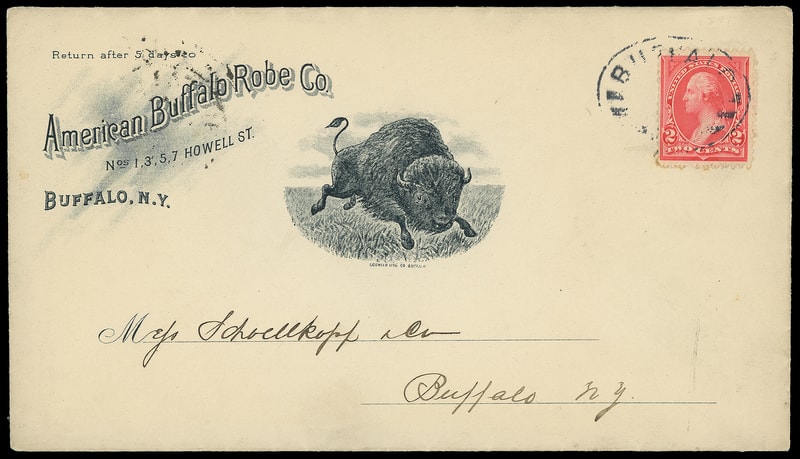 Return after 5 days to
American Buffalo Robe Co.
Nos 1,3,5,7 HOWELL ST.
BUFFALO, N.Y.
BUFFALO
UNITED STATES POSTAGE
2 2
TWO CENTS
Mess Schoellkopf & Co
Buffalo N.Y.